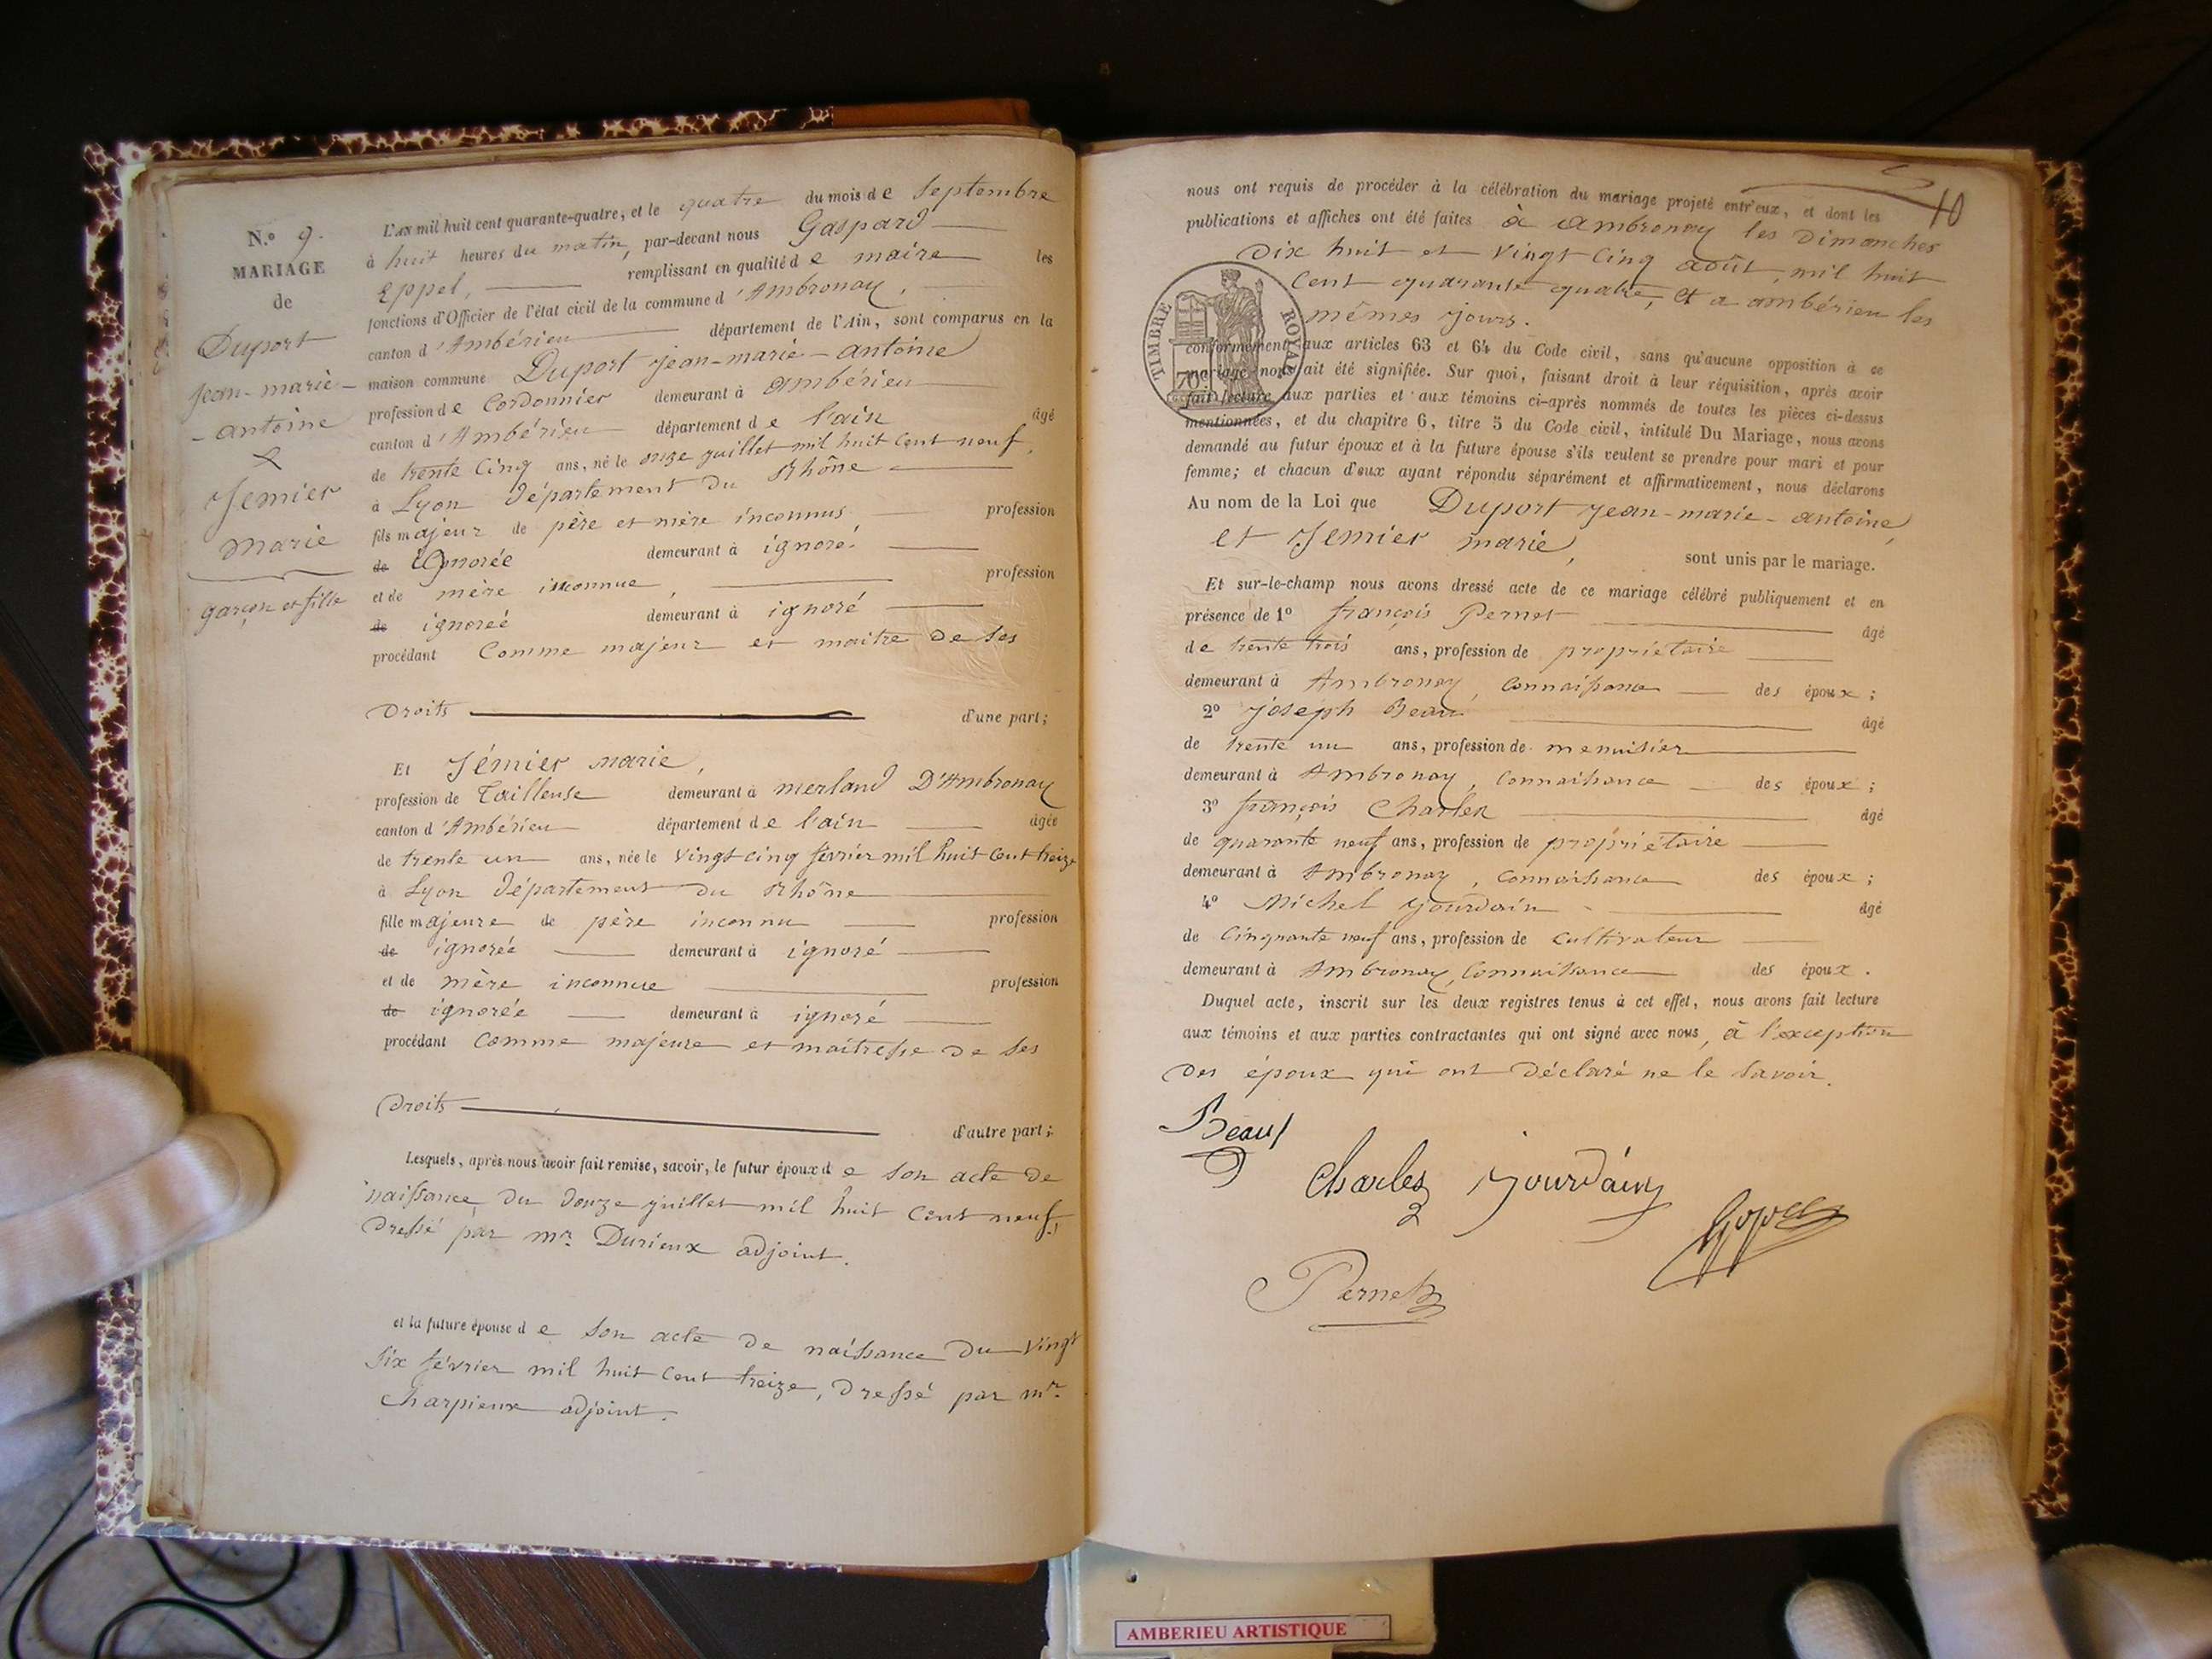 N.º 9.
MARIAGE
de
Duport
Jean-marie-
-antoine
&
Jemier
Marie
garçon et fille
L'AN mil huit cent quarante-quatre, et le quatre du mois de Septembre
à huit heures du matin, par-devant nous Gaspard
Eppel, remplissant en qualité de maire les
fonctions d'Officier de l'état civil de la commune d'Ambronay,
canton d'Ambérieu département de l'Ain, sont comparus en la
maison commune Duport Jean-marie-antoine
profession de Cordonnier demeurant à ambérieu
canton d'Ambérieu département de l'ain âgé
de trente Cinq ans, né le onze juillet mil huit cent neuf,
à Lyon département du Rhône
fils majeur de père et mère inconnus profession
de ignorée demeurant à ignoré.
et de mère inconnue, profession
de ignoreé demeurant à ignoré
procédant Comme majeur et maitre de ses
Droits d'une part;
Et Jémier marie,
profession de Tailleuse demeurant à merland D'Ambronay
canton d'Ambérieu département de l'ain âgée
de trente un ans, née le vingt cinq février mil huit cent treize
à Lyon département du Rhône
fille majeure de père inconnu profession
de ignoreé demeurant à ignoré
et de mère inconnue profession
de ignoreé demeurant à ignoré
procédant Comme majeure et maitresse de ses
Droits d'autre part;
Lesquels, après nous avoir fait remise, savoir, le futur époux de son acte de
naissance du douze juillet mil huit cent neuf,
dressé par mr. Durieux adjoint.
et la future épouse de son acte de naissance du vingt
six février mil huit cent treize, dressé par mr.
Charpieux adjoint.
10
nous ont requis de procéder à la célébration du mariage projeté entr'eux, et dont les
publications et affiches ont été faites à Ambronay les Dimanches
dix huit et vingt cinq août mil huit
cent quarante quatre, et a ambérieu les
mêmes jours.
TIMBRE ROYAL
70c
conformément aux articles 63 et 64 du Code civil, sans qu'aucune opposition à ce
mariage nous ait été signifiée. Sur quoi, faisant droit à leur réquisition, après avoir
fait lecture aux parties et aux témoins ci-après nommés de toutes les pièces ci-dessus
mentionnées, et du chapitre 6, titre 5 du Code civil, intitulé Du Mariage, nous avons
demandé au futur époux et à la future épouse s'ils veulent se prendre pour mari et pour
femme; et chacun d'eux ayant répondu séparément et affirmativement, nous déclarons
Au nom de la Loi que Duport Jean-marie-antoine,
et Jemier marie, sont unis par le mariage.
Et sur-le-champ nous avons dressé acte de ce mariage célébré publiquement et en
présence de 1º françois Pernet âgé
de trente trois ans, profession de propriétaire
demeurant à Ambronay, connaissance des époux;
2º joseph Beau âgé
de trente un ans, profession de menuisier
demeurant à Ambronay, connaissance des époux;
3º françois Charles âgé
de quarante neuf ans, profession de propriétaire
demeurant à Ambronay, connaissance des époux;
4º Michel Jourdain âgé
de Cinquante neuf ans, profession de cultivateur
demeurant à Ambronay, connaissance des époux.
Duquel acte, inscrit sur les deux registres tenus à cet effet, nous avons fait lecture
aux témoins et aux parties contractantes qui ont signé avec nous, à l'exception
des époux qui ont déclaré ne le savoir.
Beau
Charles Jourdain
Pernet
AMBERIEU ARTISTIQUE